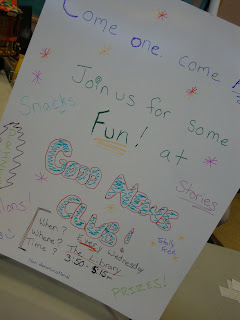 Come one, come A
Join us for some
Snacks
Fun! at
Good News
Stories
CLUB!
lons!
Totally
Free
When? Every Wednesday
Where? The Library
Time? 3:50 - 5:15
PRIZES!